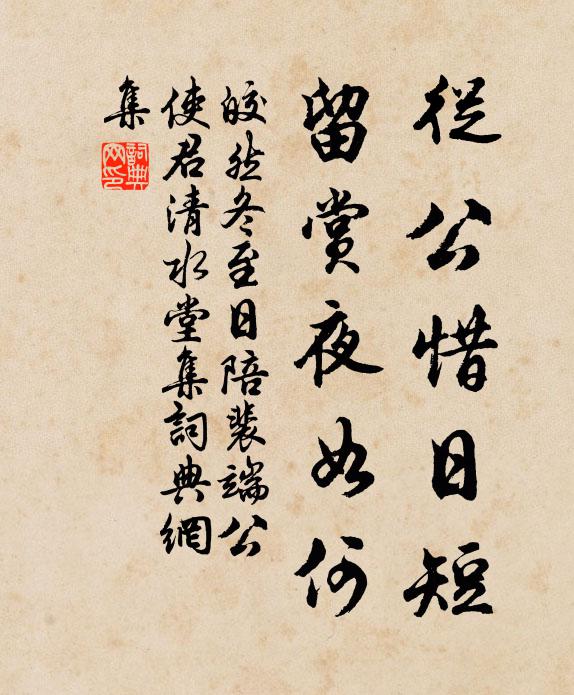 從公惜日短
留賞夜如何
皎然冬至日陪裴端公
使君清水堂集詞典網
集
詞典
網印